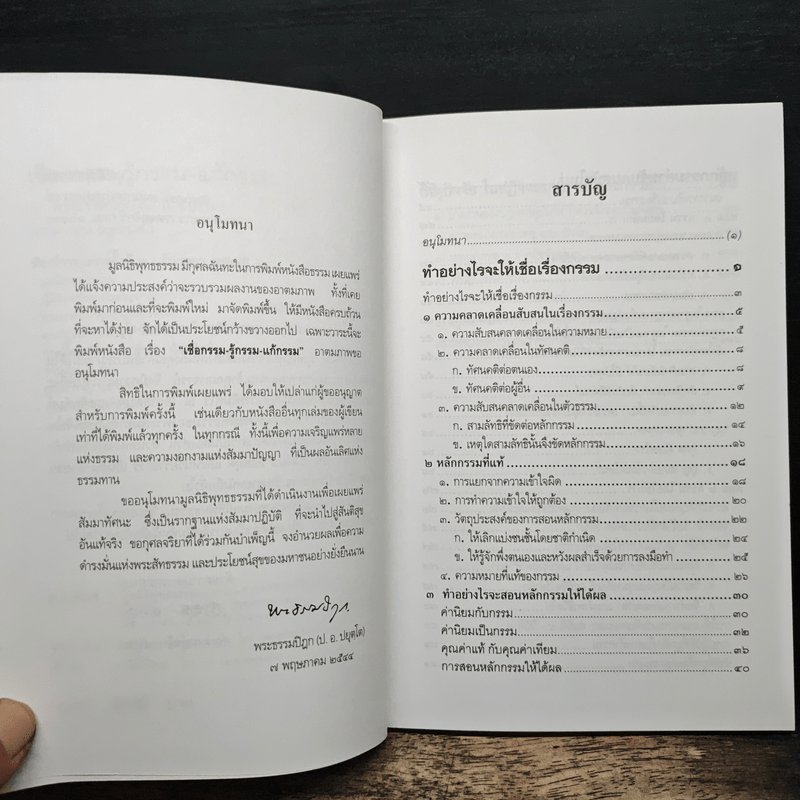 อนุโมทนา
มูลนิธิพุทธธรรม มีกุศลฉันทะในการพิมพ์หนังสือธรรม เผยแพร่
ได้แจ้งความประสงค์ว่าจะรวบรวมผลงานของอาตมภาพ ทั้งที่เคย
พิมพ์มาก่อนและที่จะพิมพ์ใหม่ มาจัดพิมพ์ขึ้น ให้มีหนังสือครบถ้วน
ที่จะหาได้ง่าย จักได้เป็นประโยชน์กว้างขวางออกไป เฉพาะวาระนี้จะ
พิมพ์หนังสือ เรื่อง "เชื่อกรรม-รู้กรรม-แก้กรรม" อาตมภาพขอ
อนุโมทนา
สิทธิในการพิมพ์เผยแพร่ ได้มอบให้เปล่าแก่ผู้ขออนุญาต
สำหรับการพิมพ์ครั้งนี้ เช่นเดียวกับหนังสืออื่นทุกเล่มของผู้เขียน
เท่าที่ได้พิมพ์แล้วทุกครั้ง ในทุกกรณี ทั้งนี้เพื่อความเจริญแพร่หลาย
แห่งธรรม และความงอกงามแห่งสัมมาปัญญา ที่เป็นผลอันเลิศแห่ง
ธรรมทาน
ขออนุโมทนามูลนิธิพุทธธรรมที่ได้ดำเนินงานเพื่อเผยแพร่
สัมมาทัศนะ ซึ่งเป็นรากฐานแห่งสัมมาปฏิบัติ ที่จะนำไปสู่สันติสุข
อันแท้จริง ขอกุศลจริยาที่ได้ร่วมกันบำเพ็ญนี้ จงอำนวยผลเพื่อความ
ดำรงมั่นแห่งพระสัทธรรม และประโยชน์สุขของมหาชนอย่างยั่งยืนนาน
พระธรรมปิฎก
พระธรรมปิฎก (ป. อ. ปยุตฺโต)
๗ พฤษภาคม ๒๕๔๔
สารบัญ
อนุโมทนา (๑)
ทำอย่างไรจะให้เชื่อเรื่องกรรม ๑
ทำอย่างไรจะให้เชื่อเรื่องกรรม ๓
๑ ความคลาดเคลื่อนสับสนในเรื่องกรรม ๕
๑. ความสับสนคลาดเคลื่อนในความหมาย ๕
๒. ความคลาดเคลื่อนในทัศนคติ ๘
ก. ทัศนคติต่อตนเอง ๘
ข. ทัศนคติต่อผู้อื่น ๙
๓. ความสับสนคลาดเคลื่อนในตัวธรรม ๑๒
ก. สามลัทธิที่ขัดต่อหลักกรรม ๑๔
ข. เหตุใดสามลัทธินั้นจึงขัดหลักกรรม ๑๖
๒ หลักกรรมที่แท้ ๑๘
๑. การแยกจากความเข้าใจผิด ๑๘
๒. การทำความเข้าใจให้ถูกต้อง ๒๐
๓. วัตถุประสงค์ของการสอนหลักกรรม ๒๒
ก. ให้เลิกแบ่งชนชั้นโดยชาติกำเนิด ๒๔
ข. ให้รู้จักพึ่งตนเองและหวังผลสำเร็จด้วยการลงมือทำ ๒๕
๔. ความหมายที่แท้ของกรรม ๒๖
๓ ทำอย่างไรจะสอนหลักกรรมให้ได้ผล ๓๐
ค่านิยมกับกรรม ๓๐
ค่านิยมเป็นกรรม ๓๒
คุณค่าแท้ กับคุณค่าเทียม ๓๖
การสอนหลักกรรมให้ได้ผล ๔๐